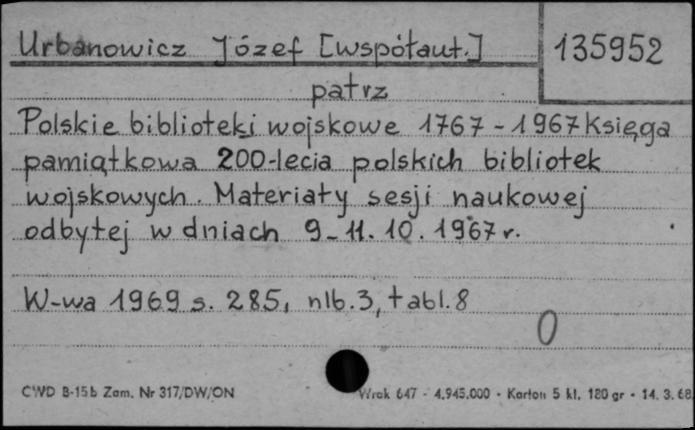 Urbanowicz Józef [współaut.]
135952
patrz
Polskie biblioteki wojskowe 1767-1967 Księga
pamiątkowa 200-lecia polskich bibliotek
wojskowych. Materiały sesji naukowej
odbytej w dniach 9-11.10.1967 r.
W-wa 1969 s. 285, nlb.3, tabl.8
0
CWD B-15b Zam. Nr 317/DW/ON
Wrak 647 - 4.945.000 - Karton 5 kl. 180 gr - 14.3.68